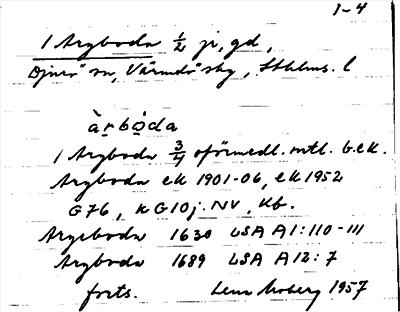 1-4
1 Aryboda 1/2 jr, gd,
Djurö sn, Värmdö skg, Sthlms. l
àrbòda
1 Aryboda 3/4 oförmedl. mtl. G.ek.
Aryboda ek 1901-06, ek 1952
G76, kG10j. NV, Kb.
1630 LSA A1:110-111
Aryboda 1689 LSA A12:7
forts. Lena Moberg 1957